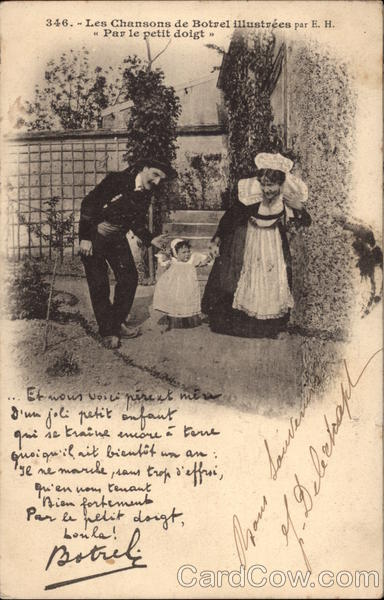 346. - Les Chansons de Botrel illustrées par E. H.
" Par le petit doigt "
... Et nous voici père et mère
D'un joli petit enfant
qui se traîne encore à terre
quoiqu'il ait bientôt un an :
Il ne marche, sans trop d'effroi,
qu'en nous tenant
Bien fortement
Par le petit doigt,
loula !
Botrel
CardCow.com